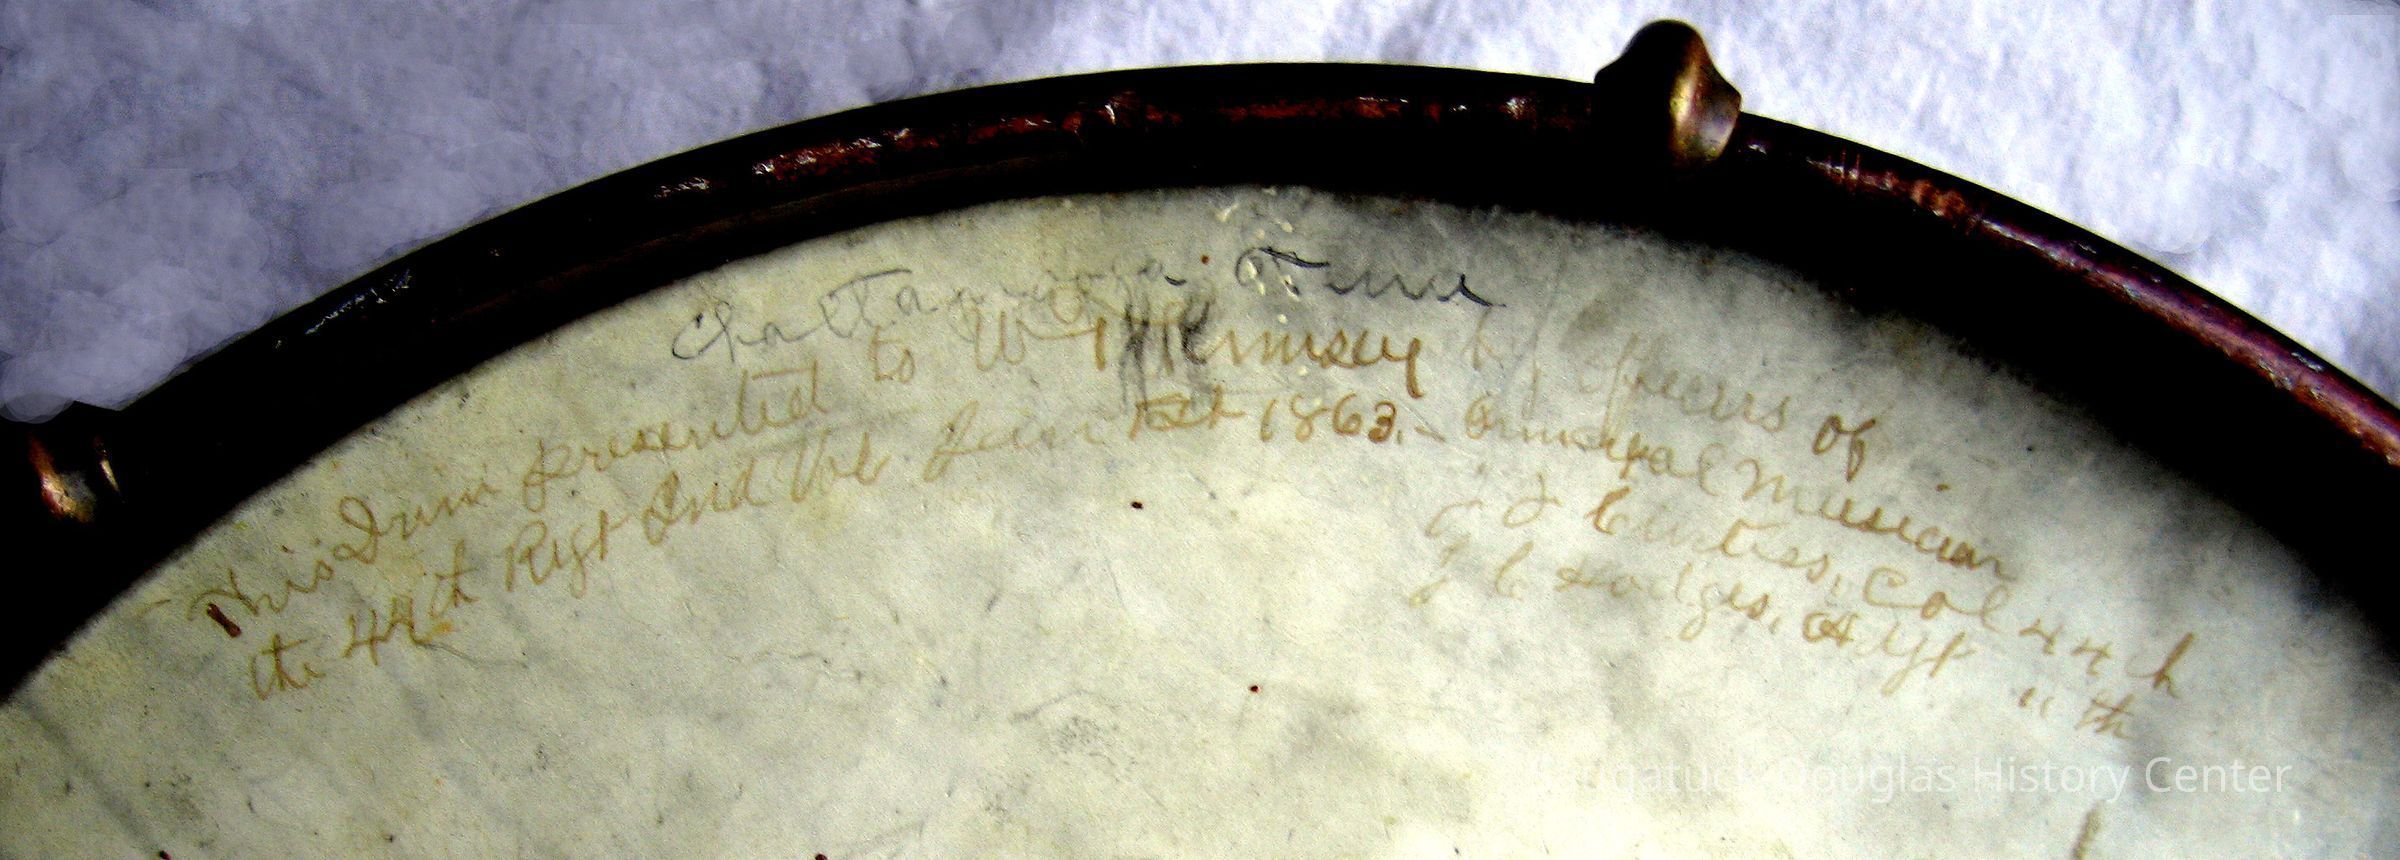 Chattanooga Tenn
This Drum presented to W by Officers of
the 44th Regt Ind Vol June 1st 1863. - Principal Musician
" J Curtiss, Col 44th
G C Hodges, Adjt " th
Saugatuck-Douglas History Center